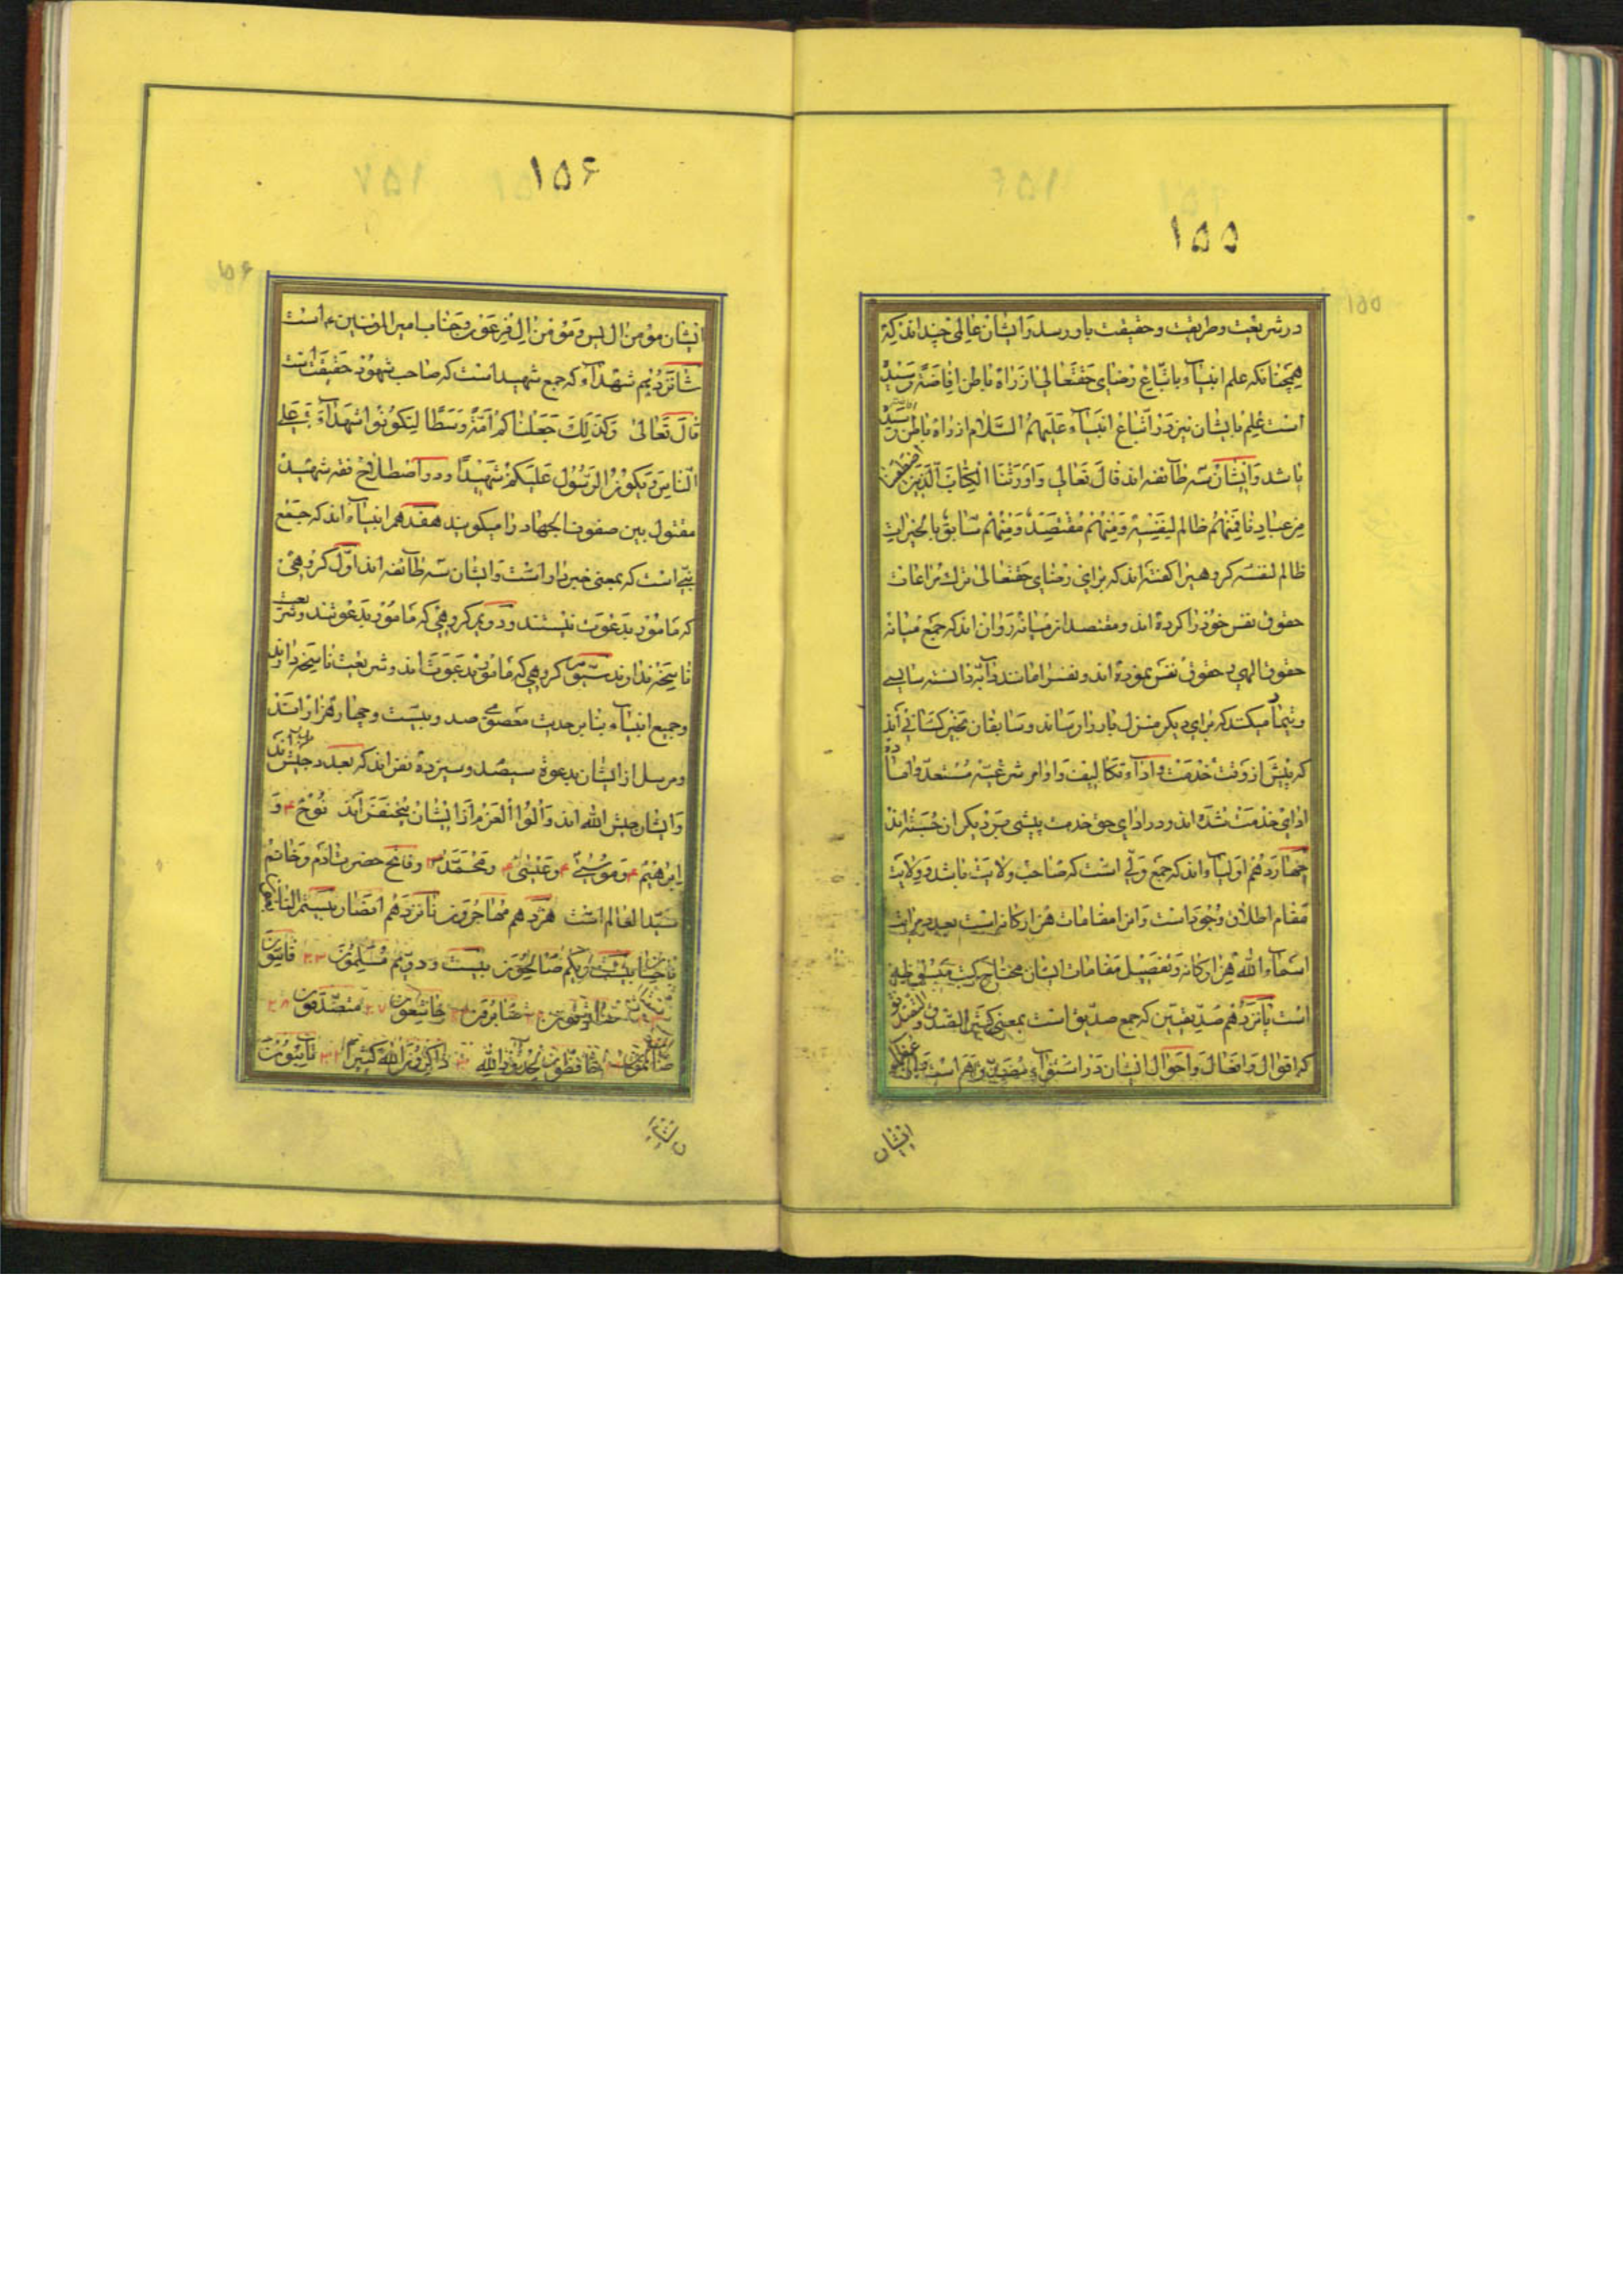 ۱۵۵
در شریعت و طریقت و حقیقت باو رسد و ایشان عالمی چند اند که
همچنانکه علم انبیآء باتباع رضای حقتعالی از راه باطن افاضة رسیده
است علم بایشان نیز در اتباع انبیآء علیهم السلام از راه باطن رسیده
باشد و ایشان سه طآئفه اند قال تعالی و اورثنا الکتاب الذین اصطفینا
من عبادنا فمنهم ظالم لنفسه و منهم مقتصد و منهم سابق بالخیرات
ظالم لنفسه کروهیرا کفته اند که برای رضای حقتعالی ترک مراعات
حقوق نفس خود را کرده اند و مقتصد از میانه روان اند که جمع میانه
حقوق الهی و حقوق نفس نموده اند و نفس را مانند دآبه دانسته سایسی
و تیمار میکنند که برای دیکر منزل بار را و رساند و سابقان بخیر کسانی اند
که پیش از وقت خدمت و ادآء تکالیف و اوامر شرعیه مستعد و اماده
ادای خدمت شده اند و در ادای حق خدمت پیشی بر دیکران جسته اند
چهاردهم اولیآء اند که جمع ولی است که صاحب ولایت باشد و ولایت
مقام اطلاق وجود است و انرا مقامات هزارکانه است بعدد مراتب
اسمآء الله هزارکانه و تفصیل مقامات ایشان محتاج بکتب مبسوطه
است پانزدهم صدیقین که جمع صدیق است بمعنی کثیر الصدق و التصدیق
که اقوال و افعال و احوال ایشان در استوآء مصدق هم است
ایشان
۱۵۶
ایشان مؤمن ال یس و مؤمن ال فرعون و جناب امیر المؤمنین ع است
شانزدهم شهدآء که جمع شهید است که صاحب شهود حقیقت است
قال تعالی و کذلک جعلناکم امة وسطا لتکونوا شهدآء علی
الناس و یکون الرسول علیکم شهیدا و در اصطلاح فقه شهید
مقتول بین صفوف الجهاد را میکویند هفدهم انبیآء اند که جمع
نبی است که بمعنی خبر داد است و ایشان سه طآئفه اند اول کروهی
که مامور بدعوت نیستند و دویم کروهی که مامور بدعوتند و شریعت
ناسخه ندارند سیوم کروهی که مامور بدعوت اند و شریعت ناسخه دارند
و جمیع انبیآء بنابر حدیث معصومی صد و بیست و چهار هزار است
و مرسل از ایشان بدعوة سیصد و سیزده نفر اند که بعدد جیش طالوت اند
و ایشان جیش الله اند و اولوا العزم از ایشان پنج نفر اند نوح ع و
ابرهیم ع و موسی ع و عیسی ع و محمد ص و فاتح حضرت ادم و خاتم
سید العالم است هژدهم مهاجرون نانزدهم انصار بیستم
بیست و یکم صالحون بیست و دویم مسلمون ۲۳ قانتون
۲۷ خاشعون متصدقون ۲۸
صآئمون حافظون لحدود الله ذاکرون الله کثیرا تآئبون